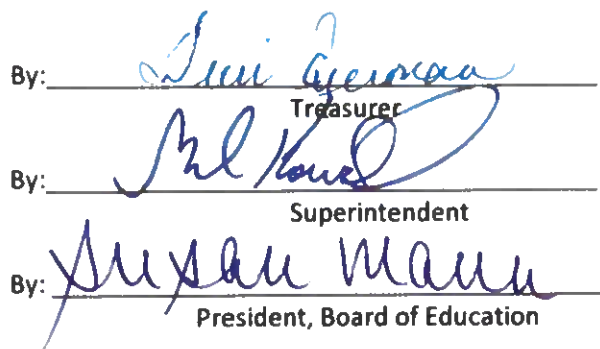 By:
Treasurer
By:
Superintendent
By: Susan Mann
President, Board of Education